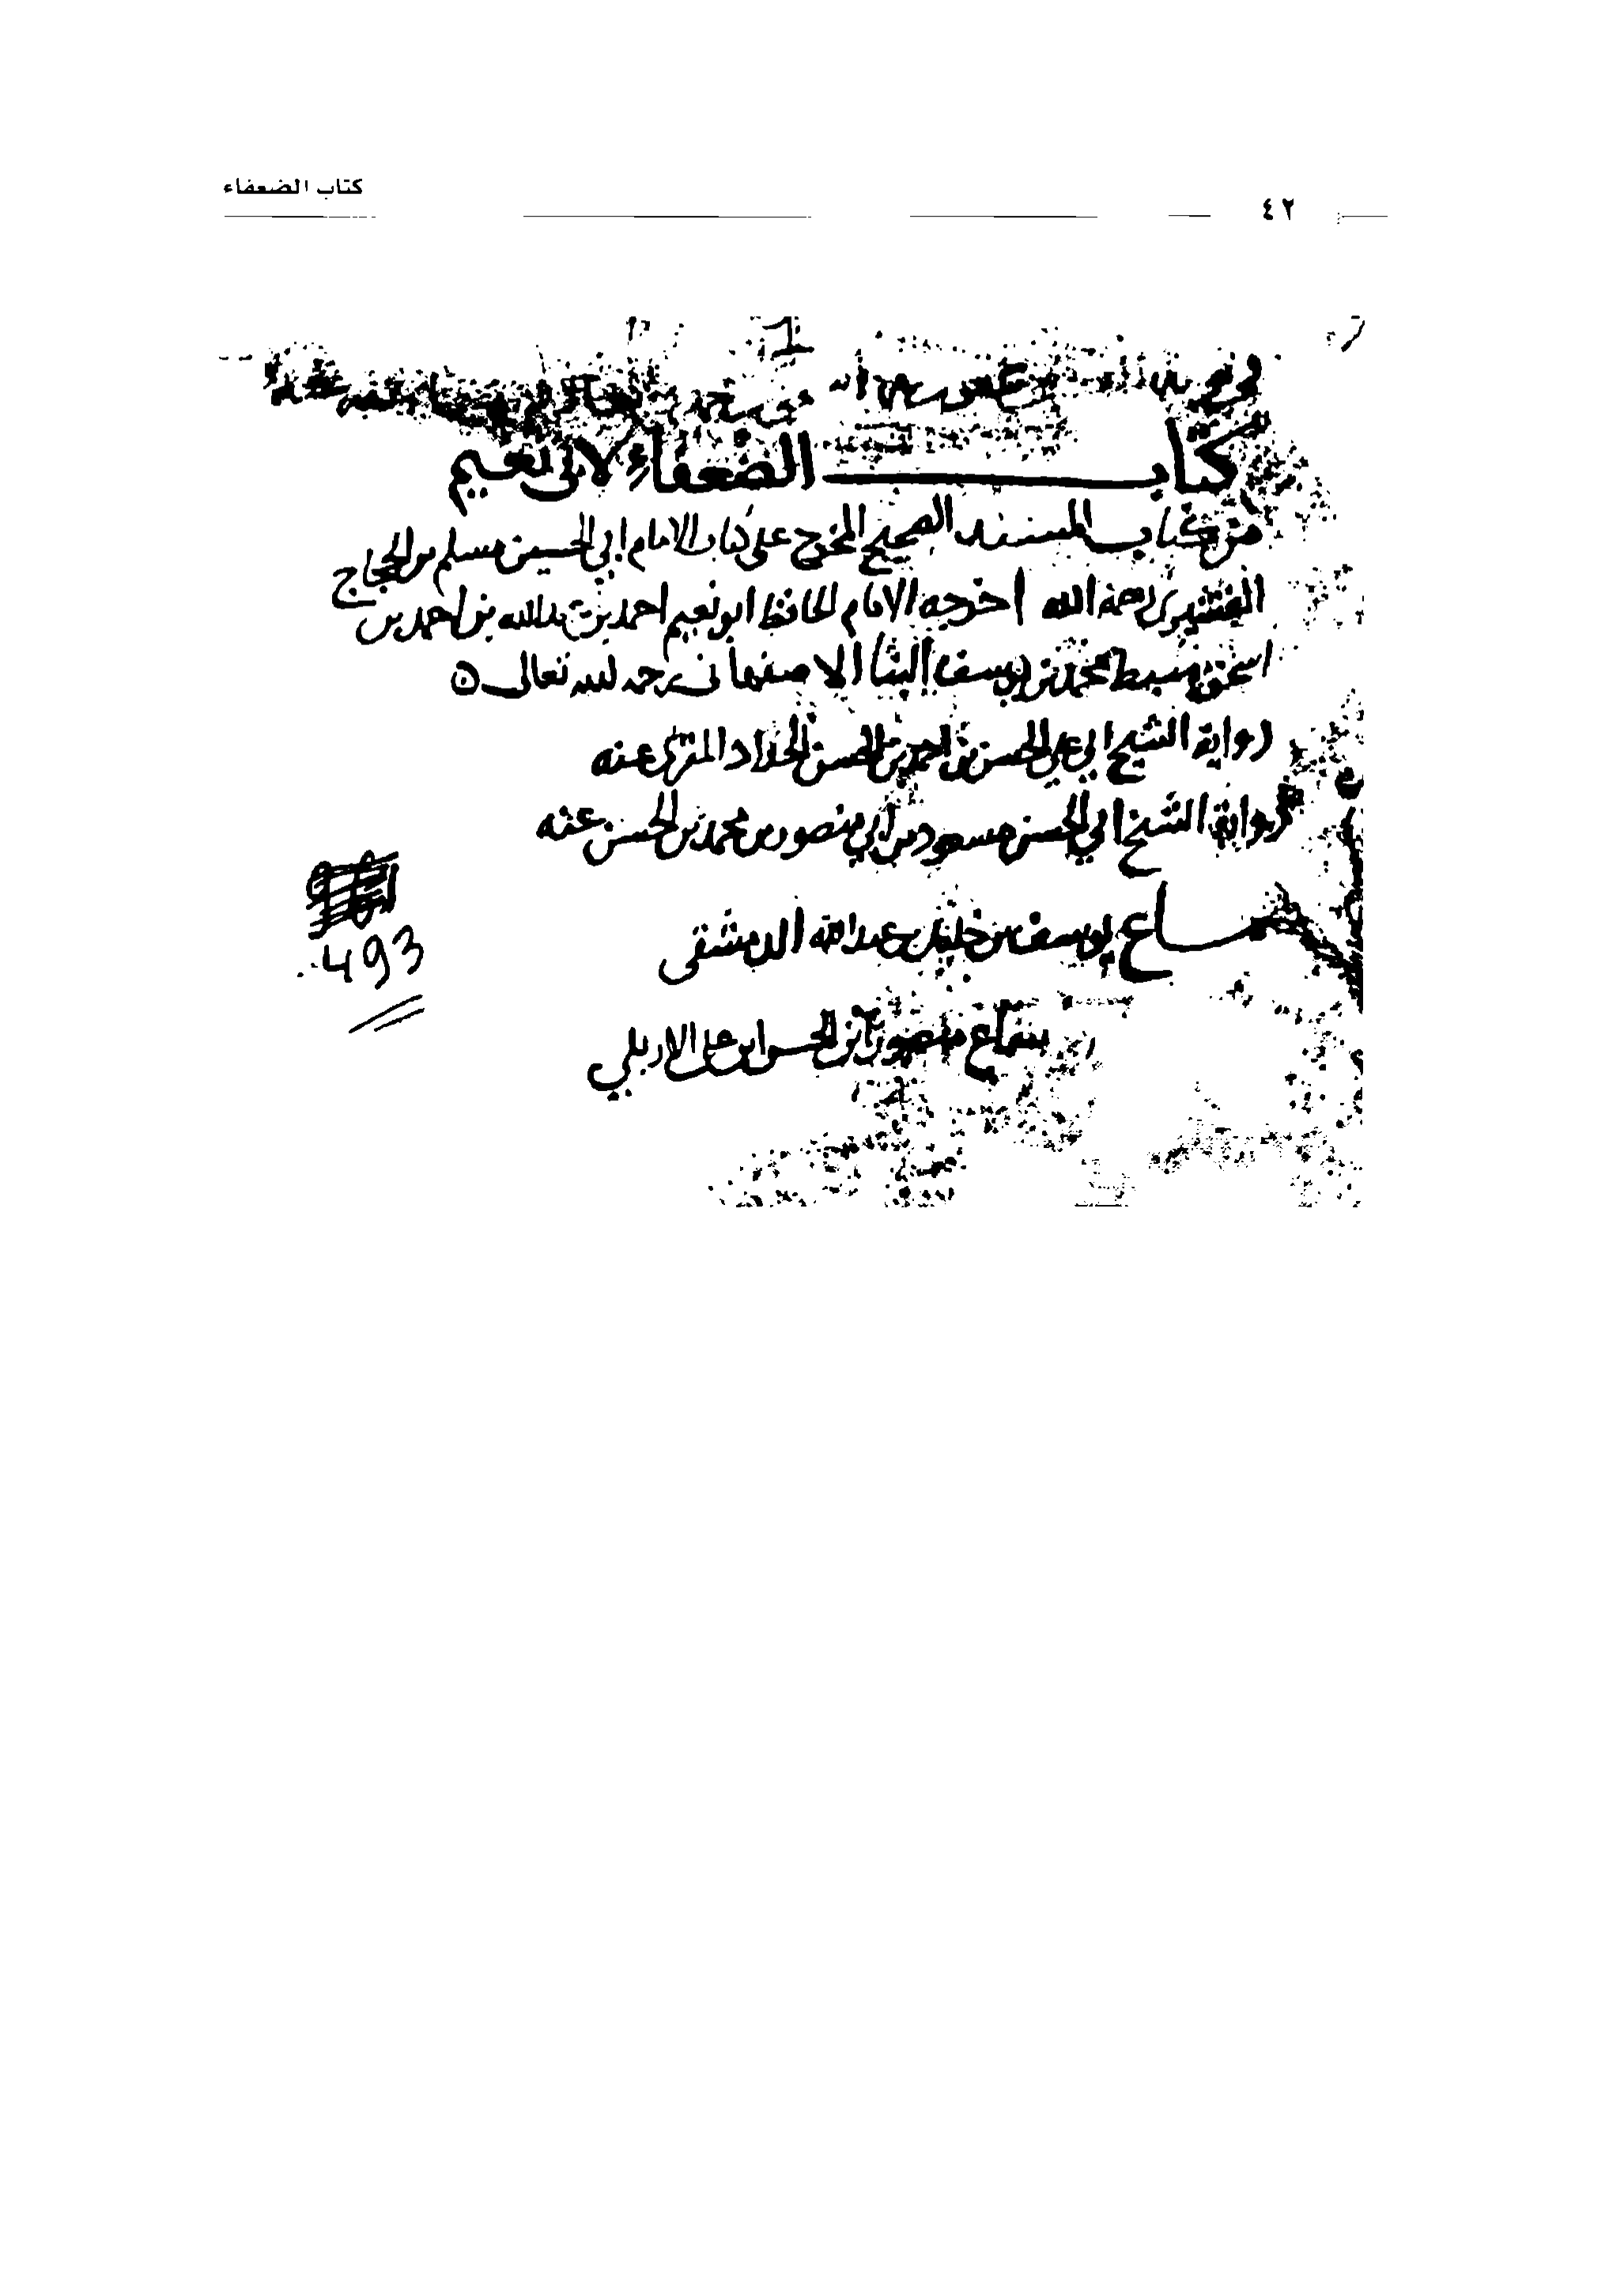 كتاب الضعفاء
٤٢
كتاب الضعفاء لابى نعيم
من كتاب المسند الصحيح المخرج على كتاب الامام ابي الحسين مسلم بن الحجاج
القشيري رحمة الله اخرجه الامام الحافظ ابو نعيم احمد بن عبد الله بن احمد بن
اسحق سبط محمد بن يوسف البنا الاصفهانى رحمه الله تعالى ه
رواية الشيخ ابي علي الحسن بن احمد بن الحسن الحداد المقرى عنه
رواية الشيخ ابي الحسن مسعود بن ابي منصور بن محمد بن الحسن عنه
سماع يوسف بن خليل بن عبد الله الدمشقى
493
سماع منصور ابن الحسن ابن على الاربلي